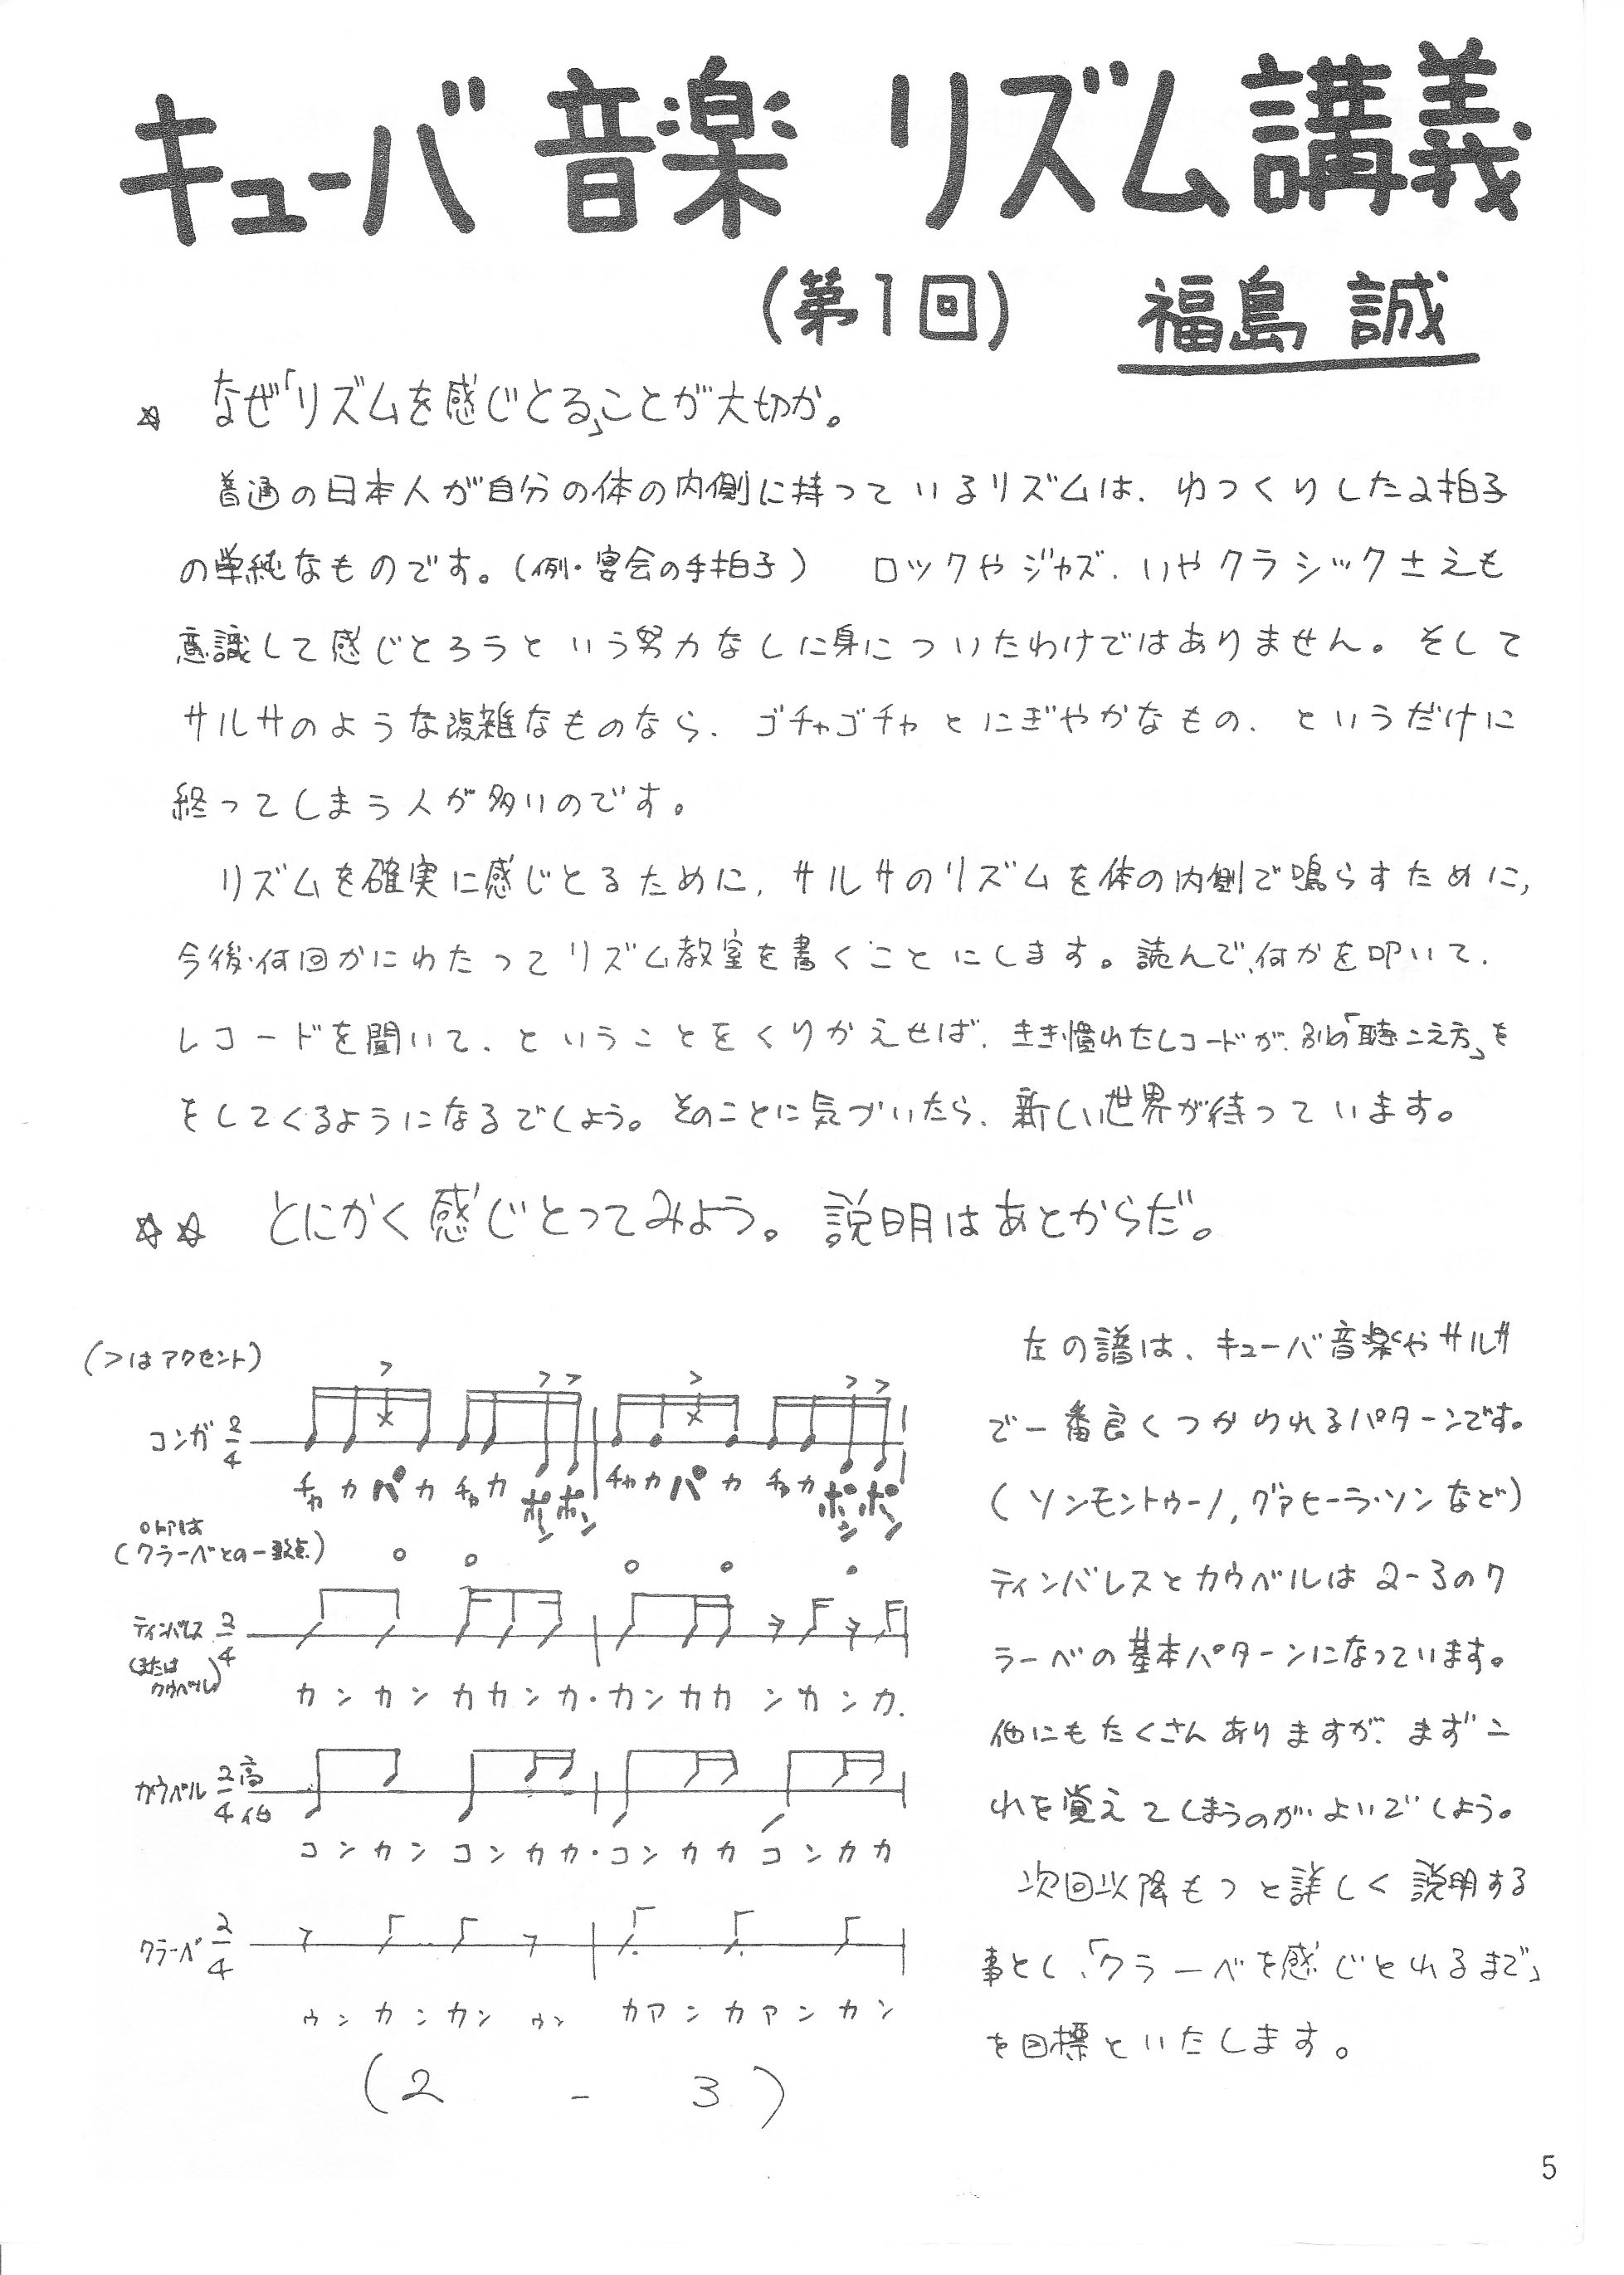 キューバ 音楽 リズム講義
(第1回) 福島 誠
☆ なぜ「リズムを感じとる」ことが大切か。
普通の日本人が自分の体の内側に持っているリズムは、ゆっくりした2拍子
の単純なものです。(例・宴会の手拍子) ロックやジャズ、いやクラシックさえも
意識して感じとろうという努力なしに身についたわけではありません。そして
サルサのような複雑なものなら、ゴチャゴチャとにぎやかなもの、というだけに
終ってしまう人が多いのです。
リズムを確実に感じとるために、サルサのリズムを体の内側で鳴らすために、
今後何回かにわたってリズム教室を書くことにします。読んで、何かを叩いて、
レコードを聞いて、ということをくりかえせば、きき慣れたレコードが、別の「聴こえ方」を
をしてくるようになるでしょう。そのことに気づいたら、新しい世界が待っています。
☆☆ とにかく感じとってみよう。説明はあとからだ。
(>はアクセント)
コンガ 2/4
チャカパカチャカポンポン チャカパカチャカポンポン
○印は
(クラーベとの一致点)
ティンバレス 2/4
(または
カウベル)
カンカンカカンカ・カンカカンカンカ.
カウベル 2/4 高
低
コンカンコンカカ・コンカカコンカカ
クラーベ 2/4
ウンカンカンウン カアンカアンカン
(2 - 3)
左の譜は、キューバ音楽やサルサ
で一番良くつかわれるパターンです。
(ソンモントゥーノ, グァヒーラ・ソンなど)
ティンバレスとカウベルは2-3のク
ラーベの基本パターンになっています。
他にもたくさんありますが、まずこ
れを覚えてしまうのがよいでしょう。
次回以降もっと詳しく説明する
事とし、「クラーベを感じとれるまで」
を目標といたします。
5